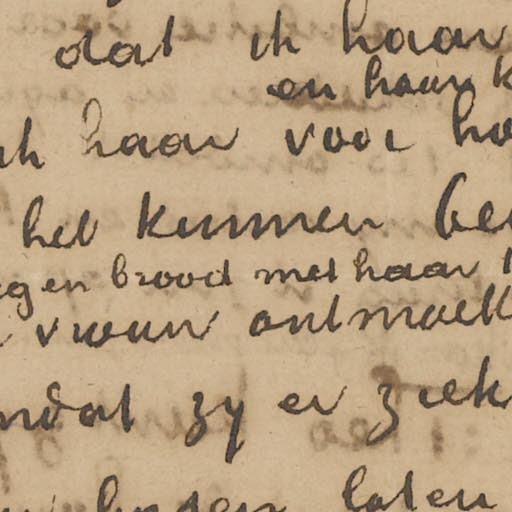 dat ik haar
en haar k
ik haar voor ho
het kunnen be
eg en brood met haar
vrouw ontmoett
mdat zy er ziek
laten